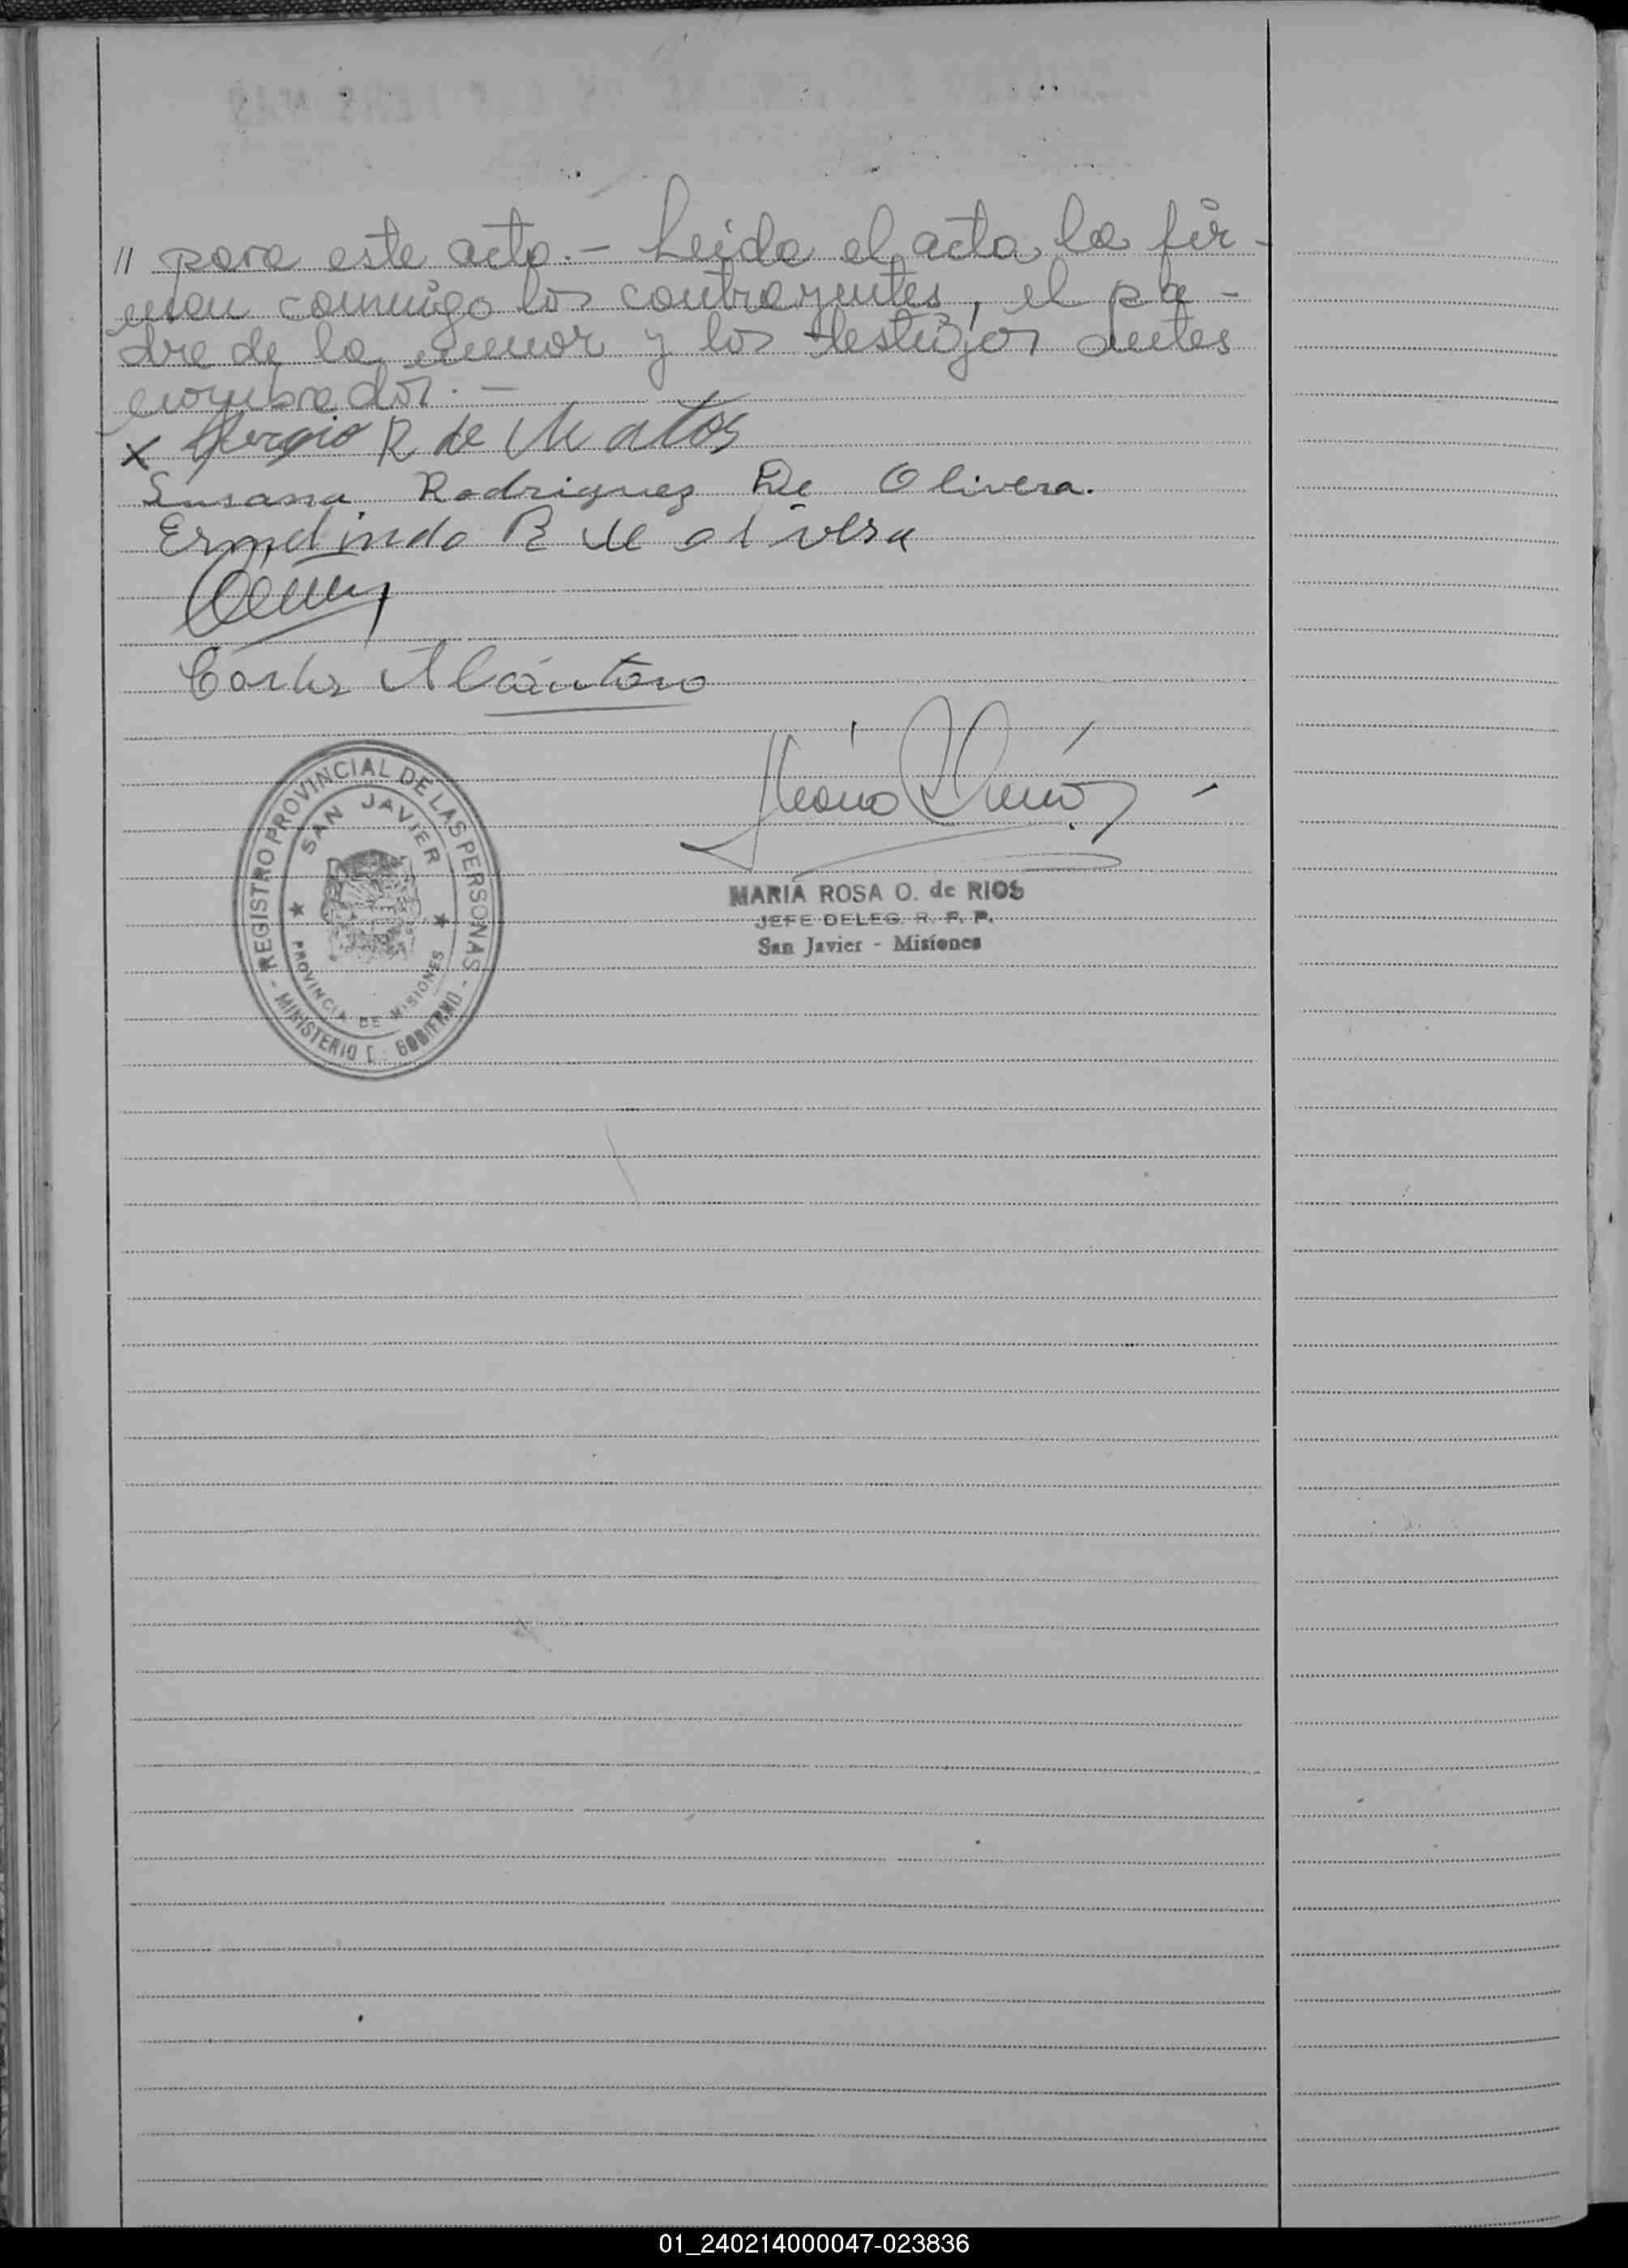 // para este acto.- Leida el acta la fir-
man conmigo los contrayentes, el pa-
dre de la menor y los testigos antes
nombrados.-
x Sergio R de Matos
Susana Rodriguez De Olivera.
Ermelindo R de olivera
Carlos Alcántara
REGISTRO PROVINCIAL DE LAS PERSONAS
SAN JAVIER
PROVINCIA DE MISIONES
- MINISTERIO D. GOBIERNO -
MARIA ROSA O. de RIOS
JEFE DELEG. R. P. P.
San Javier - Misiones
01_240214000047-023836